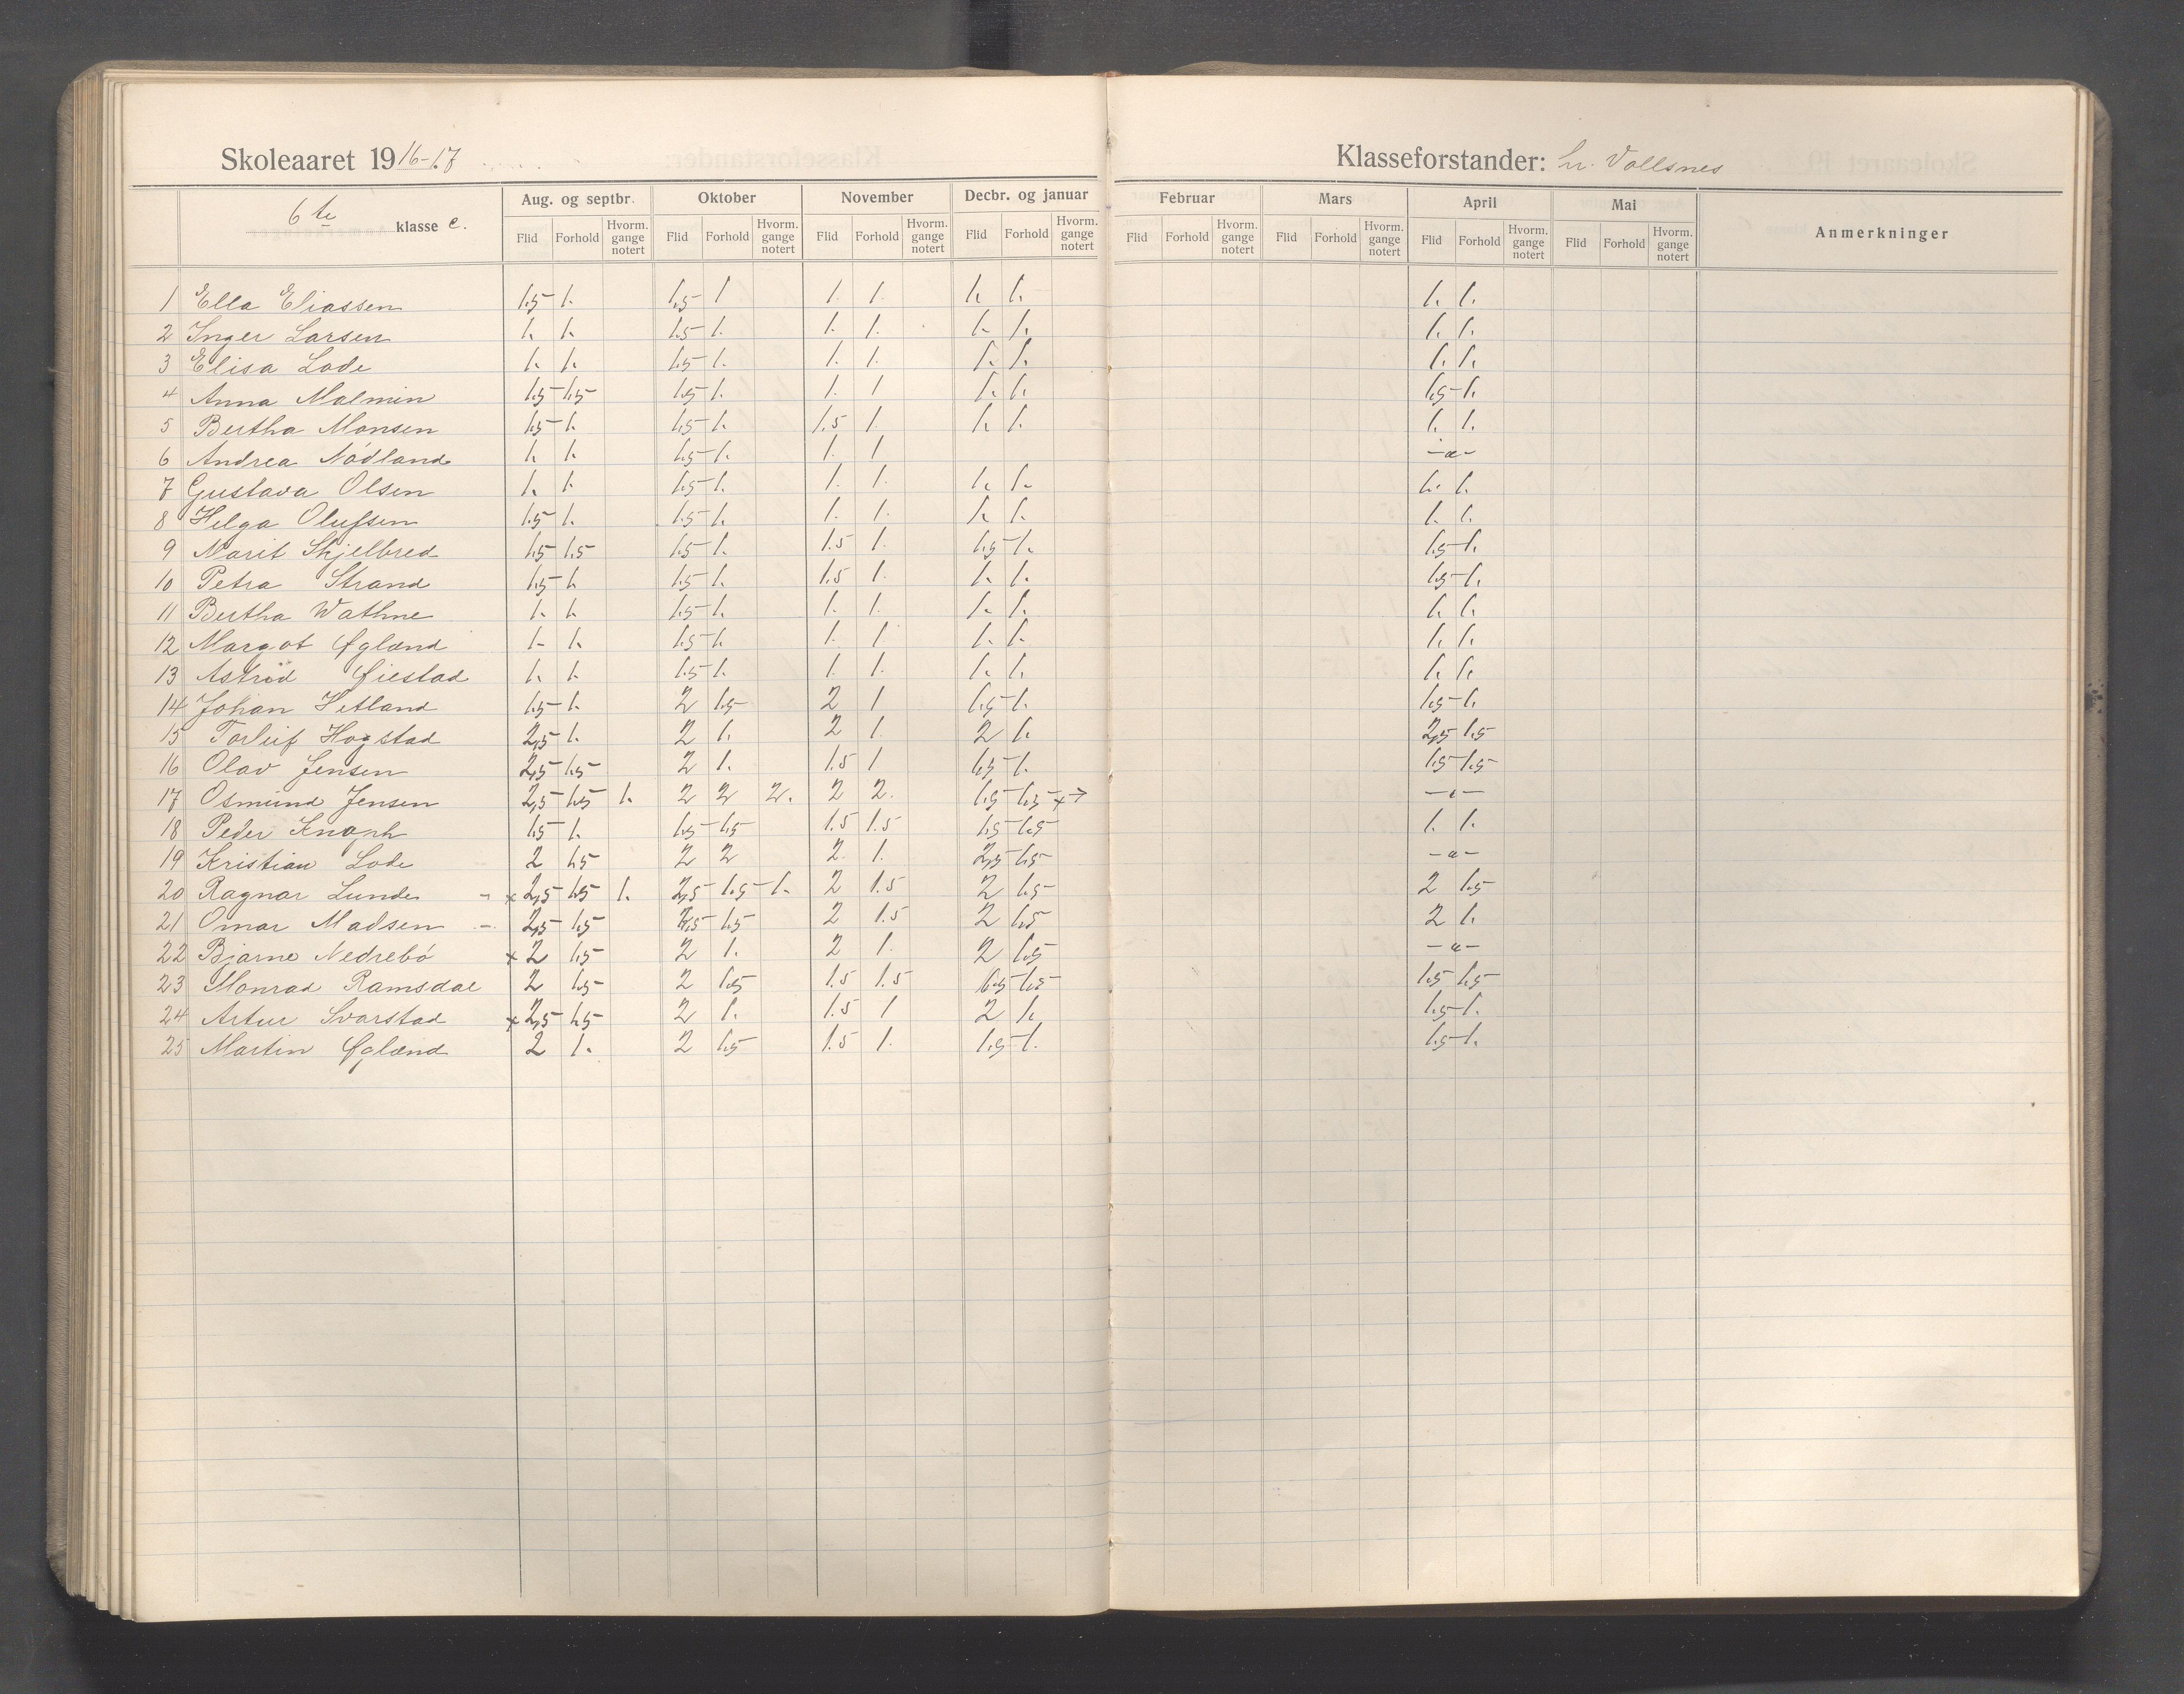 Skoleaaret 1916-17
Klasseforstander: hr. Vollsnes
6te klasse c.
Aug. og septbr. Oktober November Decbr. og januar Februar Mars April Mai Anmerkninger
Flid Forhold Hvorm. gange notert Flid Forhold Hvorm. gange notert Flid Forhold Hvorm. gange notert Flid Forhold Hvorm. gange notert Flid Forhold Hvorm. gange notert Flid Forhold Hvorm. gange notert Flid Forhold Hvorm. gange notert Flid Forhold Hvorm. gange notert
1 Ella Eliassen 1.5 1. 1.5 1 1. 1. 1. 1. 1. 1.
2 Inger Larsen 1. 1. 1.5 1. 1. 1. 1. 1. 1. 1.
3 Elisa Lode 1. 1. 1.5 1. 1. 1. 1. 1. 1. 1.
4 Anna Malmin 1.5 1.5 1.5 1. 1. 1 1. 1. 1.5 1.
5 Bertha Monsen 1.5 1. 1.5 1. 1.5 1. 1. 1. 1. 1.
6 Andrea Nødland 1. 1. 1.5 1. 1. 1 -a-
7 Gustava Olsen 1. 1. 1.5 1. 1. 1. 1. 1. 1. 1.
8 Helga Olufsen 1.5 1. 1.5 1. 1. 1. 1. 1. 1. 1.
9 Marit Skjelbred 1.5 1.5 1.5 1. 1.5 1. 1.5 1. 1.5 1.
10 Petra Strand 1.5 1. 1.5 1. 1.5 1. 1. 1. 1.5 1.
11 Bertha Wathne 1. 1. 1.5 1. 1. 1. 1. 1. 1. 1.
12 Margot Øgland 1. 1. 1.5 1. 1. 1. 1. 1. 1. 1.
13 Astrid Øiestad 1. 1. 1.5 1. 1. 1. 1. 1. 1. 1.
14 Johan Hetland 1.5 1. 2 1.5 2 1 1.5 1. 1.5 1.
15 Torleif Hogstad 2,5 1. 2 1. 2 1. 2 1. 2,5 1.5
16 Olav Jensen 2,5 1.5 2 1. 1.5 1 1.5 1. 1.5 1.5
17 Osmund Jensen 2,5 1.5 1. 2 2 2. 2 2. 1.5 1.5
18 Peder Knoph 1.5 1. 1.5 1.5 1.5 1.5 1.5 1.5 1. 1.
19 Kristian Lode 2 1.5 2 2 2. 1. 2,5 1.5 -a-
20 Ragnar Lunde - x 2,5 1.5 1. 2,5 1.5 1. 2 1.5 2 1.5 2 1.5
21 Omar Madsen - 2,5 1.5 1.5 2 1.5 2 1.5 2 1.
22 Bjarne Nedrebø x 2 1.5 2 1. 2 1. 2 1.5 -a-
23 Monrad Ramsdal 2 1.5 2 1.5 1.5 1.5 1.5 1.5 1.5 1.5
24 Artur Svarstad x 2,5 1.5 2 1. 1.5 1 2 1. 1.5 1.
25 Martin Øgland 2 1. 2 1.5 1.5 1. 1.5 1. 1.5 1.